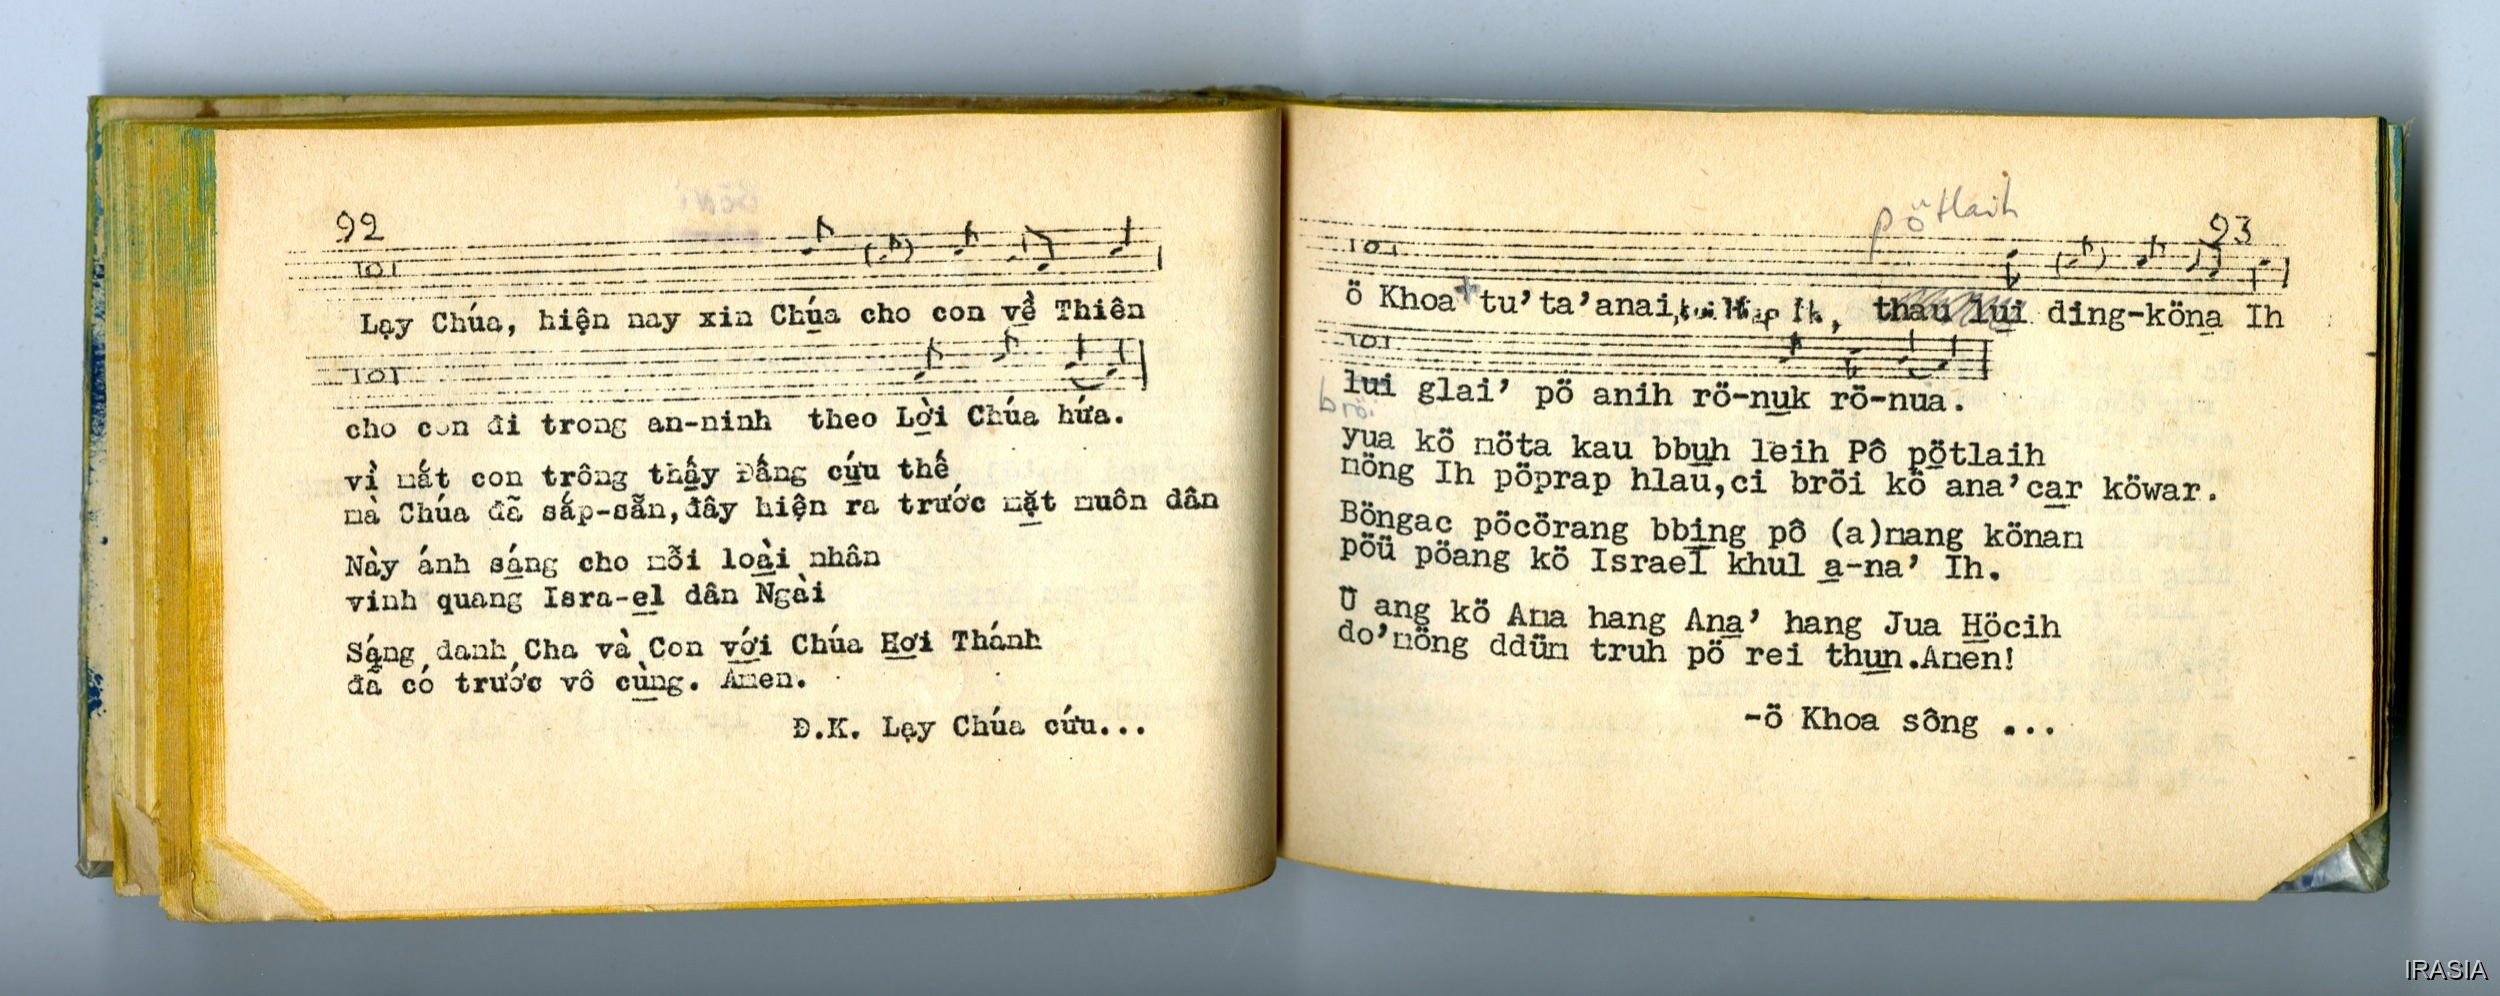 92
Lạy Chúa, hiện nay xin Chúa cho con về Thiên
cho con đi trong an-ninh theo Lời Chúa hứa.
vì mắt con trông thấy Đấng cứu thế
mà Chúa đã sắp-sẵn, đây hiện ra trước mặt muôn dân
Này ánh sáng cho mỗi loài nhân
vinh quang Isra-el dân Ngài
Sáng danh Cha và Con với Chúa Hơi Thánh
đã có trước vô cùng. Amen.
Đ.K. Lạy Chúa cứu...
pötlaih
93
ö Khoa tu’ta’anai, thau lui ding-köna Ih
lui glai’ pö anih rö-nuk rö-nua.
yua kö möta kau bbuh leih Pô pötlaih
möng Ih pöprap hlau,ci bröi kö ana’car köwar.
Böngac pöcörang bbing pô (a)mang könam
pöü pöang kö Israel khul a-na’ Ih.
Ü ang kö Ama hang Ana’ hang Jua Höcih
do’möng ddüm truh pö rei thun.Amen!
-ö Khoa sông ...
IRASIA